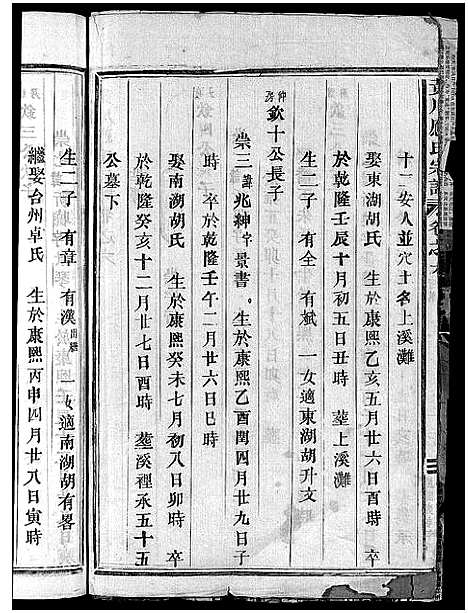 十二安人並穴土名上溪灘
娶東湖胡氏 生於康熙乙亥五月廿六日酉時 卒
於乾隆壬辰十月初五日丑時 塟上溪灘
生二子 有全 有斌 一女適東湖胡升文
仲房 欽十公長子
崇三 諱兆紳字景書 生於康熙乙酉閏四月廿九日子
時 卒於乾隆壬午二月廿六日巳時
娶南湖胡氏 生於康熙癸未七月初八日卯時 卒
於乾隆癸亥十二月廿七日酉時 塟溪裡承五十五
公墓下
生二子 有章 有漢出繼 一女適南湖胡有畧
繼娶台州卓氏 生於康熙丙申四月廿八日寅時